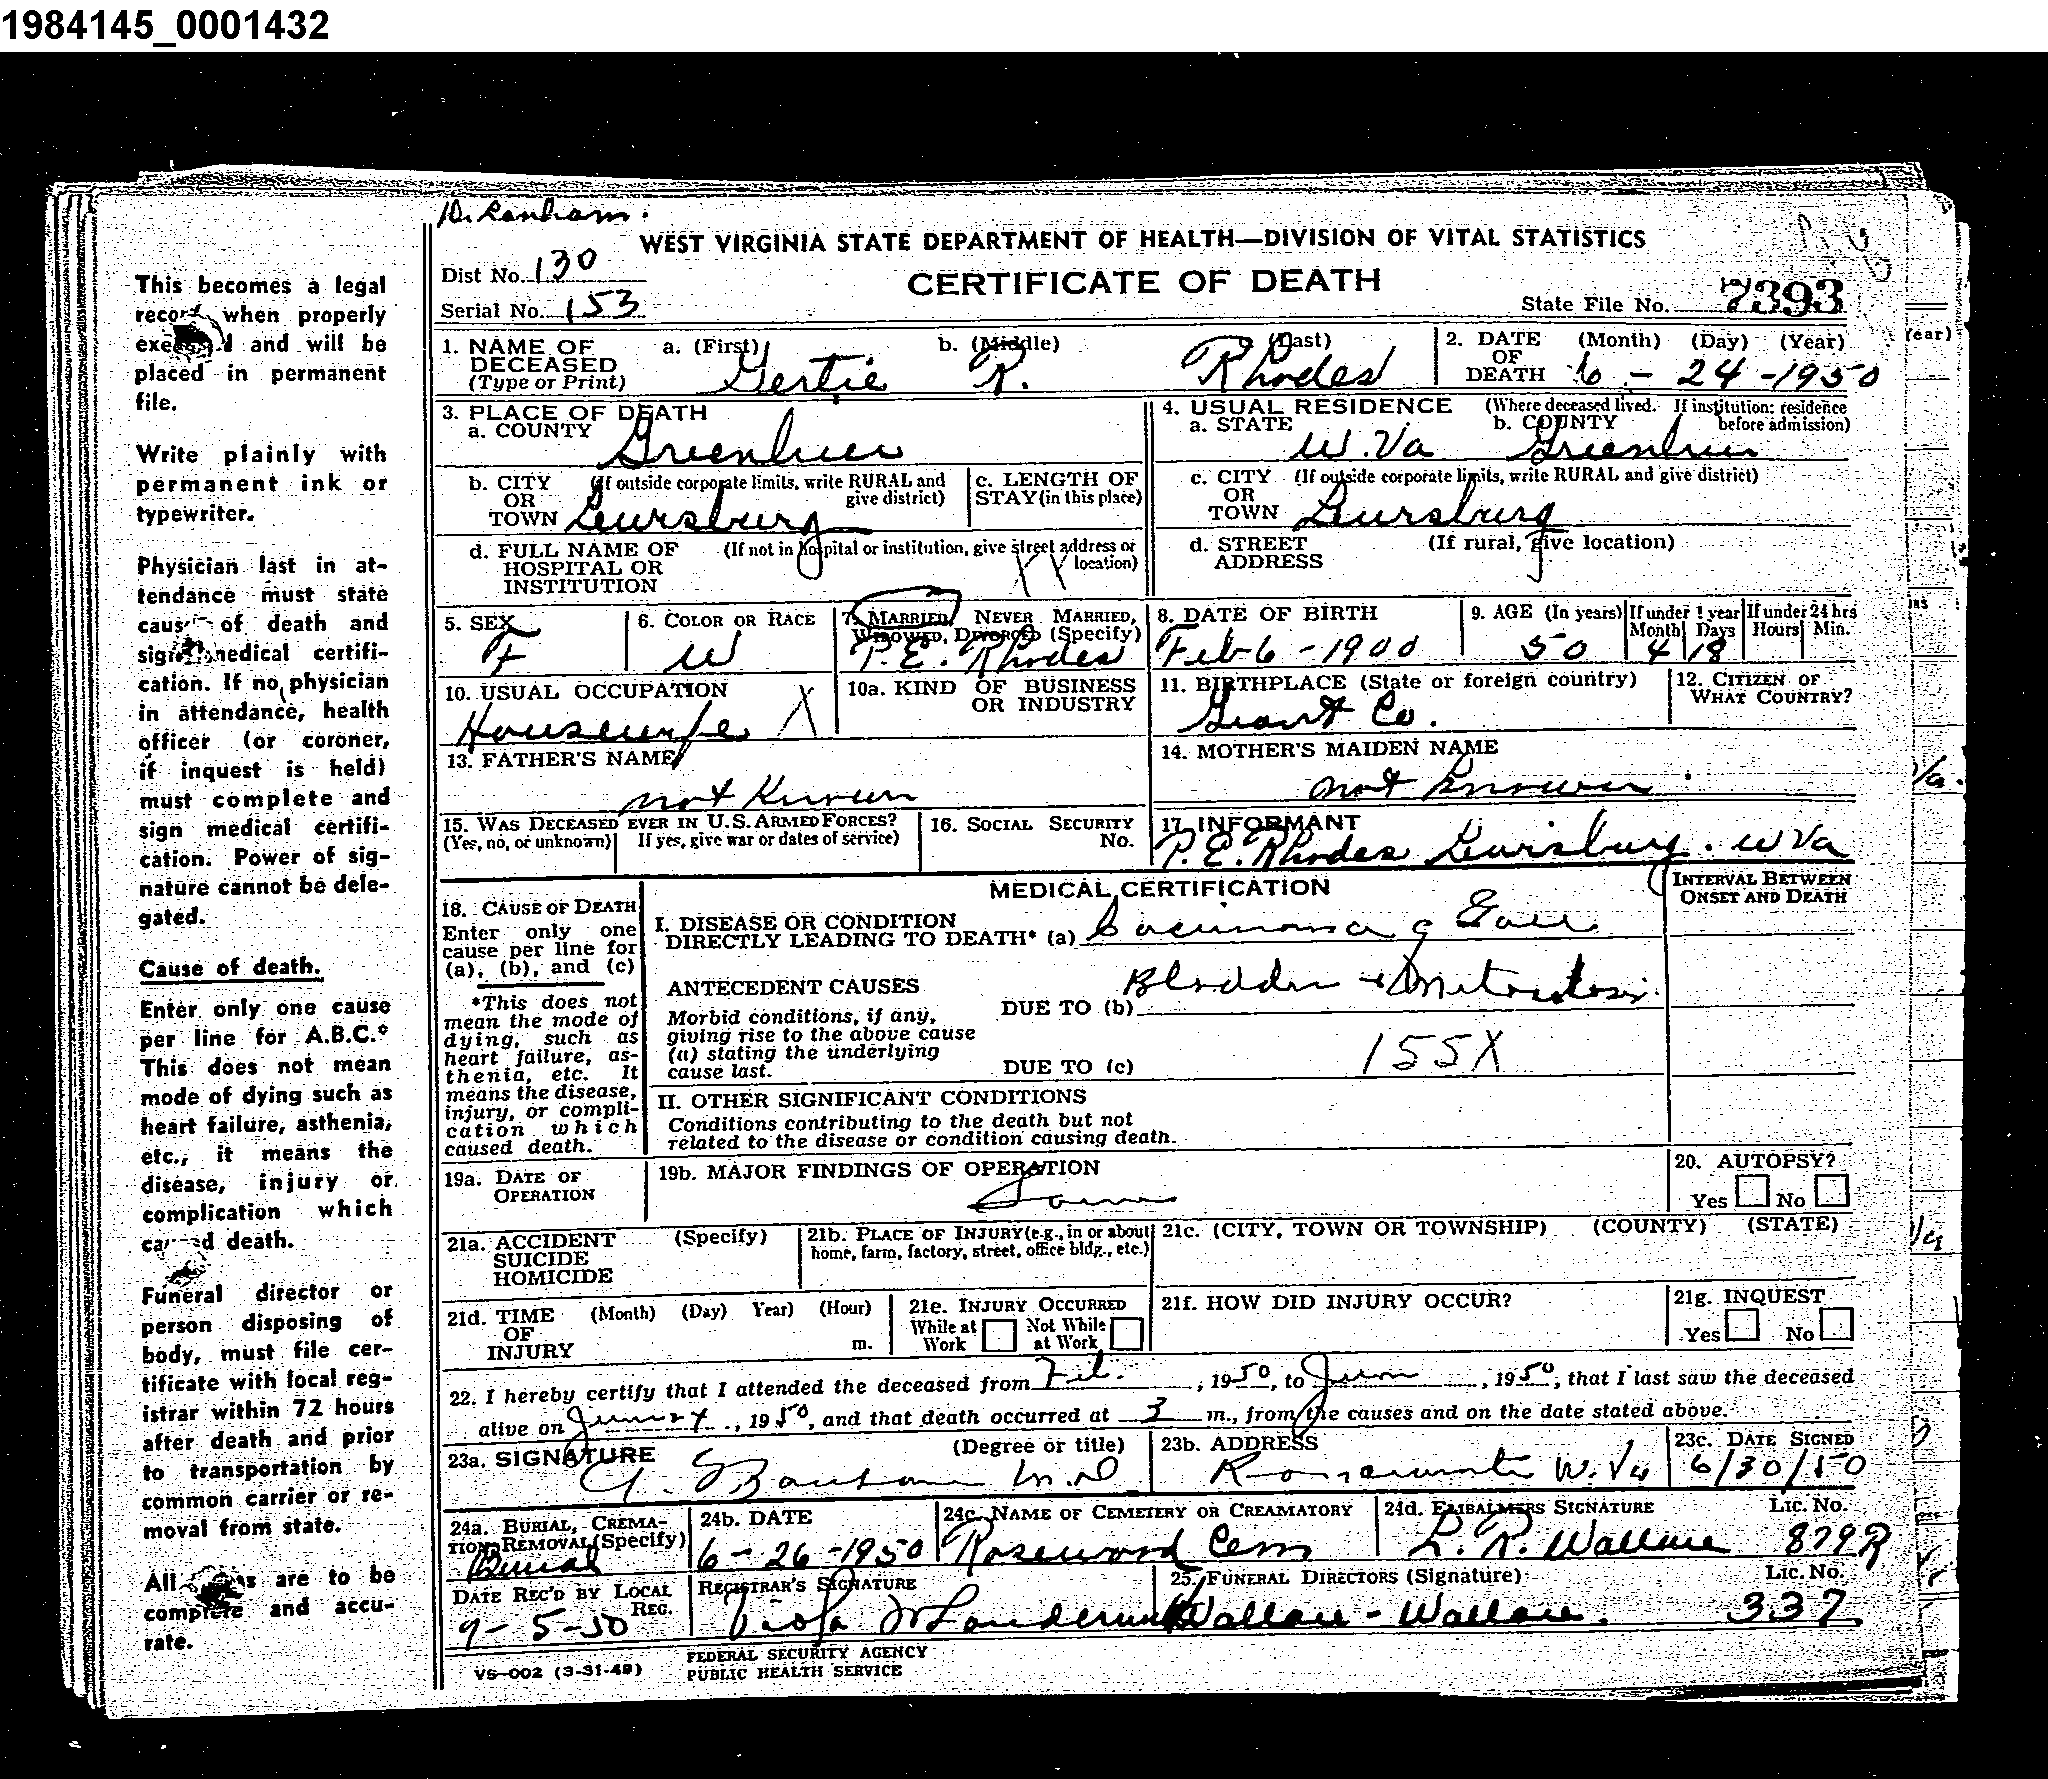 1984145_0001432
WEST VIRGINIA STATE DEPARTMENT OF HEALTH—DIVISION OF VITAL STATISTICS
CERTIFICATE OF DEATH
Dist No. 130
Serial No. 153
State File No. 7393
This becomes a legal
record when properly
and will be
placed in permanent
file.
Write plainly with
permanent ink or
typewriter.
Physician last in at-
tendance must state
cause of death and
sign medical certifi-
cation. If no physician
in attendance, health
officer (or coroner,
if inquest is held)
must complete and
sign medical certifi-
cation. Power of sig-
nature cannot be dele-
gated.
Cause of death.
Enter only one cause
per line for A.B.C.*
This does not mean
mode of dying such as
heart failure, asthenia,
etc., it means the
disease, injury or
complication which
caused death.
Funeral director or
person disposing of
body, must file cer-
tificate with local reg-
istrar within 72 hours
after death and prior
to transportation by
common carrier or re-
moval from state.
All are to be
complete and accu-
rate.
1. NAME OF DECEASED (Type or Print) a. (First) Gertie b. (Middle) R. c. (Last) Rhodes
2. DATE OF DEATH (Month) (Day) (Year) 6 - 24 - 1950
3. PLACE OF DEATH
a. COUNTY Greenbrier
b. CITY OR TOWN (If outside corporate limits, write RURAL and give district) Lewisburg
c. LENGTH OF STAY (in this place)
d. FULL NAME OF HOSPITAL OR INSTITUTION (If not in hospital or institution, give street address or location) X X
4. USUAL RESIDENCE (Where deceased lived. If institution: residence before admission)
a. STATE W. Va b. COUNTY Greenbrier
c. CITY OR TOWN (If outside corporate limits, write RURAL and give district) Lewisburg
d. STREET ADDRESS (If rural, give location)
5. SEX F
6. COLOR OR RACE W
7. MARRIED, NEVER MARRIED, WIDOWED, DIVORCED (Specify) P. E. Rhodes
8. DATE OF BIRTH Feb 6 - 1900
9. AGE (In years) 50 If under 1 year Month 4 Days 18 If under 24 hrs Hours Min.
10. USUAL OCCUPATION Housewife X
10a. KIND OF BUSINESS OR INDUSTRY
11. BIRTHPLACE (State or foreign country) Grant Co.
12. CITIZEN OF WHAT COUNTRY?
13. FATHER'S NAME not Known
14. MOTHER'S MAIDEN NAME not Known
15. WAS DECEASED EVER IN U.S. ARMED FORCES? (Yes, no, or unknown) If yes, give war or dates of service)
16. SOCIAL SECURITY No.
17. INFORMANT P. E. Rhodes Lewisburg. W Va
MEDICAL CERTIFICATION
INTERVAL BETWEEN ONSET AND DEATH
18. CAUSE OF DEATH
Enter only one
cause per line for
(a), (b), and (c)
*This does not
mean the mode of
dying, such as
heart failure, as-
thenia, etc. It
means the disease,
injury, or compli-
cation which
caused death.
I. DISEASE OR CONDITION
DIRECTLY LEADING TO DEATH* (a) Carcinoma of Gall
ANTECEDENT CAUSES
Bladder + Metastasis
DUE TO (b)
Morbid conditions, if any,
giving rise to the above cause
(a) stating the underlying
cause last.
DUE TO (c) 155X
II. OTHER SIGNIFICANT CONDITIONS
Conditions contributing to the death but not
related to the disease or condition causing death.
19a. DATE OF OPERATION
19b. MAJOR FINDINGS OF OPERATION Same
20. AUTOPSY? Yes No
21a. ACCIDENT SUICIDE HOMICIDE (Specify)
21b. PLACE OF INJURY (e.g., in or about home, farm, factory, street, office bldg., etc.)
21c. (CITY, TOWN OR TOWNSHIP) (COUNTY) (STATE)
21d. TIME OF INJURY (Month) (Day) Year) (Hour) m.
21e. INJURY OCCURRED While at Work Not While at Work
21f. HOW DID INJURY OCCUR?
21g. INQUEST Yes No
22. I hereby certify that I attended the deceased from Feb. , 1950, to June , 1950, that I last saw the deceased
alive on June 24 , 1950, and that death occurred at 3 m., from the causes and on the date stated above.
23a. SIGNATURE (Degree or title) M.D
23b. ADDRESS Ronceverte W. Va
23c. DATE SIGNED 6/30/50
24a. BURIAL, CREMATION, REMOVAL (Specify) Burial
24b. DATE 6 - 26 - 1950
24c. NAME OF CEMETERY OR CREAMATORY Rosewood Cem
24d. EMBALMERS SIGNATURE L. R. Wallace Lic. No. 879R
DATE REC'D BY LOCAL REG. 9-5-50
REGISTRAR'S SIGNATURE Viola
25. FUNERAL DIRECTORS (Signature) Wallace - Wallace. Lic. No. 337
VS-002 (3-31-49)
FEDERAL SECURITY AGENCY
PUBLIC HEALTH SERVICE